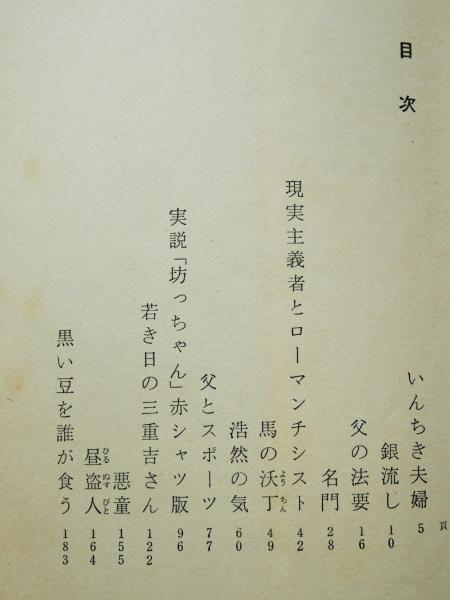 目次
頁
いんちき夫婦 5
銀流し 10
父の法要 16
名門 28
現実主義者とローマンチシスト 42
馬の沃丁 49
ようちん
浩然の気 60
父とスポーツ 77
実説「坊っちゃん」赤シャツ版 96
若き日の三重吉さん 122
悪童 155
昼盗人 164
ひるぬすびと
黒い豆を誰が食う 183